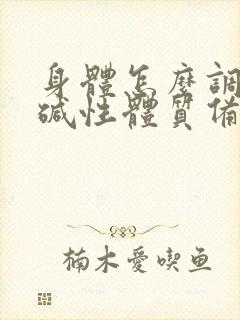 身體怎麼調
碱性體質備
楠木愛喫鱼